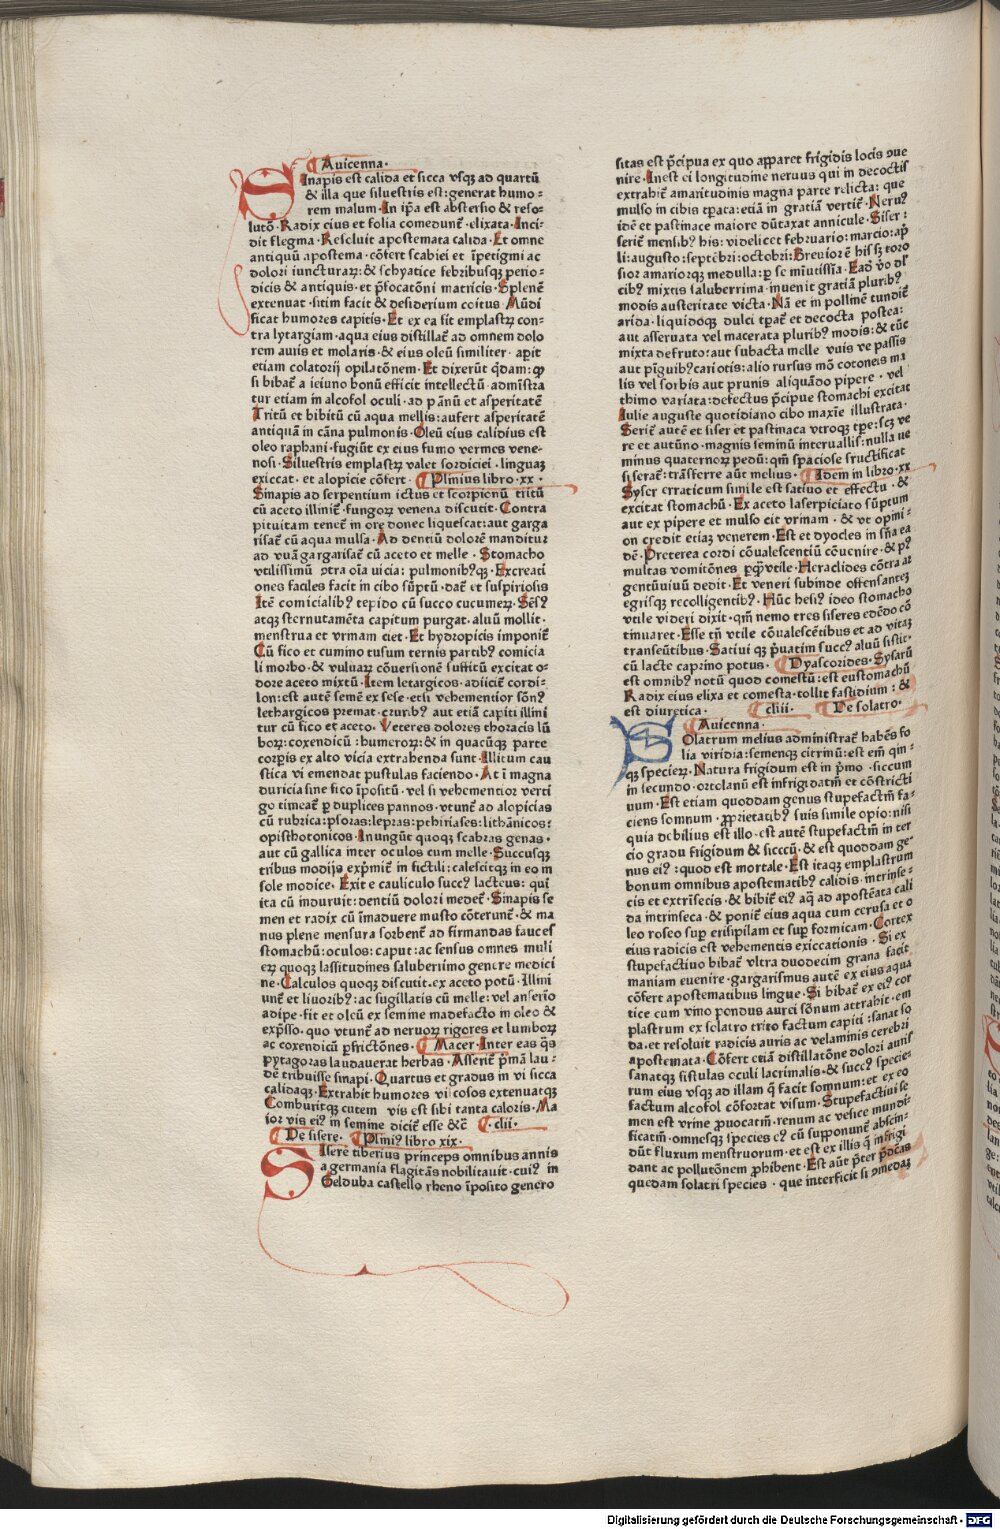 Auicenna.
Sinapis est calida et sicca vsqꝫ ad quartū
& illa que siluestris est: generat humo=
rem malum. In ip̄a est abstersio & reso-
lutō. Radix eius et folia comedunt̄. elixata. Inci-
dit flegma. Resoluit apostemata calida. Et omne
antiquū apostema. cōfert scabiei et īpetigini ac
dolori iuncturaꝝ: & schyatice febribusqꝫ perio-
dicis & antiquis. et p̄focatōni matricis. Splenē
extenuat. sitim facit & desiderium coitus. Mūdi
ficat humores capitis. Et ex ea fit emplastꝝ con-
tra lytargiam. aqua eius distillat̄ ad omnem dolo
rem auris et molaris. & eius oleū similiter. apit
etiam colatorij opilatōnem. Et dixerūt q̄dam: ꝙ
si bibat̄ a ieiuno bonū efficit intellectū. admīstra
tur etiam in alcofol oculi. ad pānū et asperitatē
Tritū et bibitū cū aqua mellis: aufert asperitatē
antiquā in cāna pulmonis. Oleū eius calidius est
oleo raphani. fugiūt ex eius fumo vermes vene-
nosi. Siluestris emplastꝝ valet sordiciei. linguaꝝ
exiccat. et alopicie cōfert. Plinius libro. xx.
Sinapis ad serpentium ictus et scorpionū tritū
cū aceto illinit̄. fungoꝝ venena discutit. Contra
pituitam tenet̄ in ore donec liquescat: aut garga
risat̄ cū aqua mulsa. Ad dentiū dolorē manditur
ad vuā gargarisat̄ cū aceto et melle. Stomacho
vtilissimū ꝯtra oīa vicia: pulmonibꝰqꝫ. Excreati
ones faciles facit in cibo sūptū. dat̄ et suspiriosis
Itē comicialibꝰ tepido cū succo cucumeꝝ. Sēsꝰ
atqꝫ sternutamēta capitum purgat. aluū mollit.
menstrua et vrinam ciet. Et hydropicis imponit̄
Cū fico et cumino tusum ternis partibꝰ comicia
li morbo. & vuluaꝝ cōuersionē suffitū excitat o-
dore aceto mixtū. Item letargicos. adiicit̄ cordi-
lon: est autē semē ex sese. etsi vehementior sōnꝰ
lethargicos premat. cruribꝰ aut etiā capiti illini
tur cū fico et aceto. Veteres dolores thoracis lū
boꝝ: coxendicū: humeroꝝ: & in quacūqꝫ parte
corpis ex alto vicia extrahenda sunt. Illitum cau
stica vi emendat pustulas faciendo. At ī magna
duricia sine fico īpositū. vel si vehementior verti
go timeat̄ p duplices pannos. vtunt̄ ad alopicias
cū rubrica: psoras: lepras: pthiriases: lithānicos:
opisthotonicos. Inungūt quoqꝫ scabras genas.
aut cū gallica inter oculos cum melle. Succusqꝫ
tribus modijs exp̄mit̄ in fictili: calescitqꝫ in eo in
sole modice. Exit e cauliculo succꝰ lacteus: qui
ita cū induruit: dentiū dolori medet̄. Sinapis se
men et radix cū īmaduere musto cōterunt̄. & ma
nus plene mensura sorbent̄ ad firmandas fauces
stomachū: oculos: caput: ac sensus omnes muli
eꝝ quoqꝫ lassitudines saluberrimo genere medici
ne. Calculos quoqꝫ discutit. ex aceto potū. Illini
unt̄ et liuoribꝰ: ac sugillatis cū melle: vel anserio
adipe. fit et oleū ex semine madefacto in oleo &
exp̄sso. quo vtunt̄ ad neruoꝝ rigores et lumboꝝ
ac coxendicū ꝑfrictōnes. Macer. Inter eas q̄s
pytagoras laudauerat herbas. Asserit̄ p̄mā lau-
dē tribuisse sinapi. Quartus et gradus in vi sicca
calidaqꝫ. Extrahit humores viscosos extenuatqꝫ
Comburitqꝫ cutem vis est sibi tanta caloris. Ma
ior vis eiꝰ in semine dicit̄ esse &c̄ clii.
De sisere. Pliniꝰ libro xix.
Sisere tiberius princeps omnibus annis
a germania flagitās nobilitauit. cuiꝰ in
Gelduba castello rheno īposito genero
sitas est p̄cipua ex quo apparet frigidis locis ꝯue
nire. Inest ei longitudine neruus qui in decoctis
extrahit̄ amaritudinis magna parte relicta: que
mulso in cibis tp̄ata: etiā in gratiā vertit̄. Neruꝰ
idē et pastinace maiore dūtaxat annicule. Siser:
serit̄ mensibꝰ his: videlicet februario: marcio: ap̄
li: augusto: septēbri: octobri: Breuior ē his sꝫ toro
sior amariorqꝫ medulla: p se inutissīa. Eadē vo dl
cibꝰ mixtis saluberrima. inuenit gratiā pluribꝰ
modis austeritate victa. Nā et in pollinē tundit̄
arida. liquidoqꝫ dulci tp̄at̄ et decocta postea:
aut asseruata vel macerata pluribꝰ modis: & tūc
mixta defruto: aut subacta melle vuis ve passis
aut pīguibꝰ cariotis: alio rursus mō cotoneis ma
lis vel sorbis aut prunis aliquādo pipere. vel
thimo variata: defectus p̄cipue stomachi excitat
Iulie auguste quotidiano cibo maxīe illustrata.
Serit̄ autē et siser et pastinaca vtroqꝫ tp̄e: scꝫ ve
re et autūno. magnis seminū interuallis: nulla ue
minus quaternoꝝ pedū: qm̄ spaciose fructificat
si serat̄: trāsferre aūt melius. Idem in libro. xx
Syser erraticum simile est satiuo et effectu. &
excitat stomachū. Ex aceto laserpiciato sūptum
aut ex pipere et mulso cit vrinam. & vt opini-
on credit etiaꝫ venerem. Est et dyocles in sn̄a ea
dē. Preterea cordi cōualescentiū cōuenire. & pꝰ
multas vomitōnes ꝑqꝫ vtile. Heraclides cōtra ar
gentūuiuū dedit. Et veneri subinde offensanteꝫ
egrisqꝫ recolligentibꝰ. Hūc hesiꝰ ideo stomacho
vtile videri dixit. qm̄ nemo tres siseres edēdo cō
tinuaret. Esse tn̄ vtile cōualescētibus et ad vitaꝫ
transeūtibus. Satiui qꝫ p̄uatim succꝰ aluū sistit.
cū lacte caprino potus. Dyascorides. Sysarū
est omnibꝰ notū quod comestū: est eustomachū
Radix eius elixa et comesta. tollit fastidium: &
est diuretica. cliii. De solatro.
Auicenna.
Solatrum melius administrat̄ habēs fo
lia viridia: semenqꝫ citrinū: est em̄ qin-
qꝫ specieꝝ. Natura frigidum est in p̄mo. siccum
in secundo. ortolanū est infrigidatm̄ et cōstricti
uum. Est etiam quoddam genus stupefactm̄ fa-
ciens somnum. ꝓprietatibꝰ suis simile opio: nisi
quia debilius est illo. est autē stupefactm̄ in ter
cio gradu frigidum & siccū. & est quoddam ge-
nus eiꝰ: quod est mortale. Est itaqꝫ emplastrum
bonum omnibus apostematibꝰ calidis. intrinse-
cis et extrīsecis. & bibit̄ eiꝰ aq̄ ad apostēata cali
da intrinseca. & ponit̄ eius aqua cum cerusa et o
leo roseo sup erisipilam et sup formicam. Cortex
eius radicis est vehementis exiccationis. Si ex
stupefactiuo bibat̄ vltra duodecim grana facit
maniam euenire. gargarismus autē ex eius aqua
cōfert apostematibus lingue. Si bibat̄ ex eiꝰ cor
tice cum vino pondus aurei sōnum attrahit. em
plastrum ex solatro trito factum capiti: sanat so
da. et resoluit radicis auris ac velaminis cerebri
apostemata. Cōfert etiā distillatōne dolori auris
sanatqꝫ fistulas oculi lacrimalis. & succꝰ specie-
rum eius vsqꝫ ad illam q̄ facit somnum: et ex eo
factum alcofol cōfortat visum. Stupefactiui se
men est vrine ꝓuocatm̄. renum ac vesice mundi-
ficatm̄. omnesqꝫ species eꝰ cū supponunt̄ abscin-
dūt fluxum menstruorum. et est ex illis q̄ infrigi
dant ac pollutōnem ꝓhibent. Est aūt p̄ter p̄dc̄as
quedam solatri species. que interficit si ꝯmedaꝫ
Digitalisierung gefördert durch die Deutsche Forschungsgemeinschaft - DFG